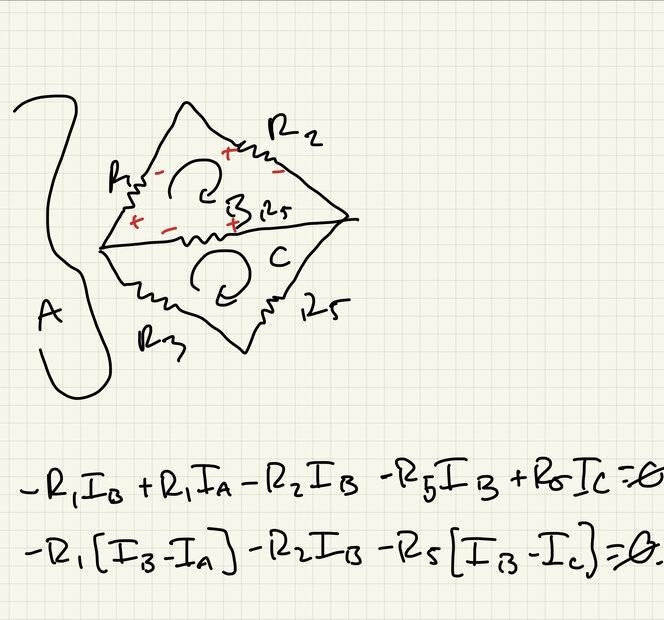 R2
R1
+ -
- +
B R5
- +
C
A
R3
R5
-R₁I_B + R₁I_A - R₂I_B - R₅I_B + R₅I_C = 0
-R₁[I_B - I_A] - R₂I_B - R₅[I_B - I_C] = 0.